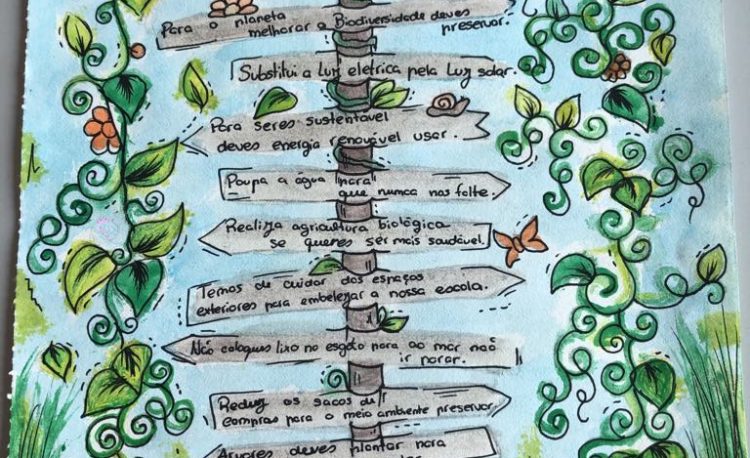 Para o planeta
melhorar a Biodiversidade deves
preservar.
Substitui a Luz eletrica pela Luz solar.
Para seres sustentável
deves energia renovável usar.
Poupa a água para
que nunca nos falte.
Realiza agricultura biológica
se queres ser mais saudável.
Temos de cuidar dos espaços
exteriores para embelezar a nossa escola.
Não coloques lixo no esgoto para ao mar não
ir parar.
Reduz os sacos de
compras para o meio ambiente preservar
Árvores deves plantar para